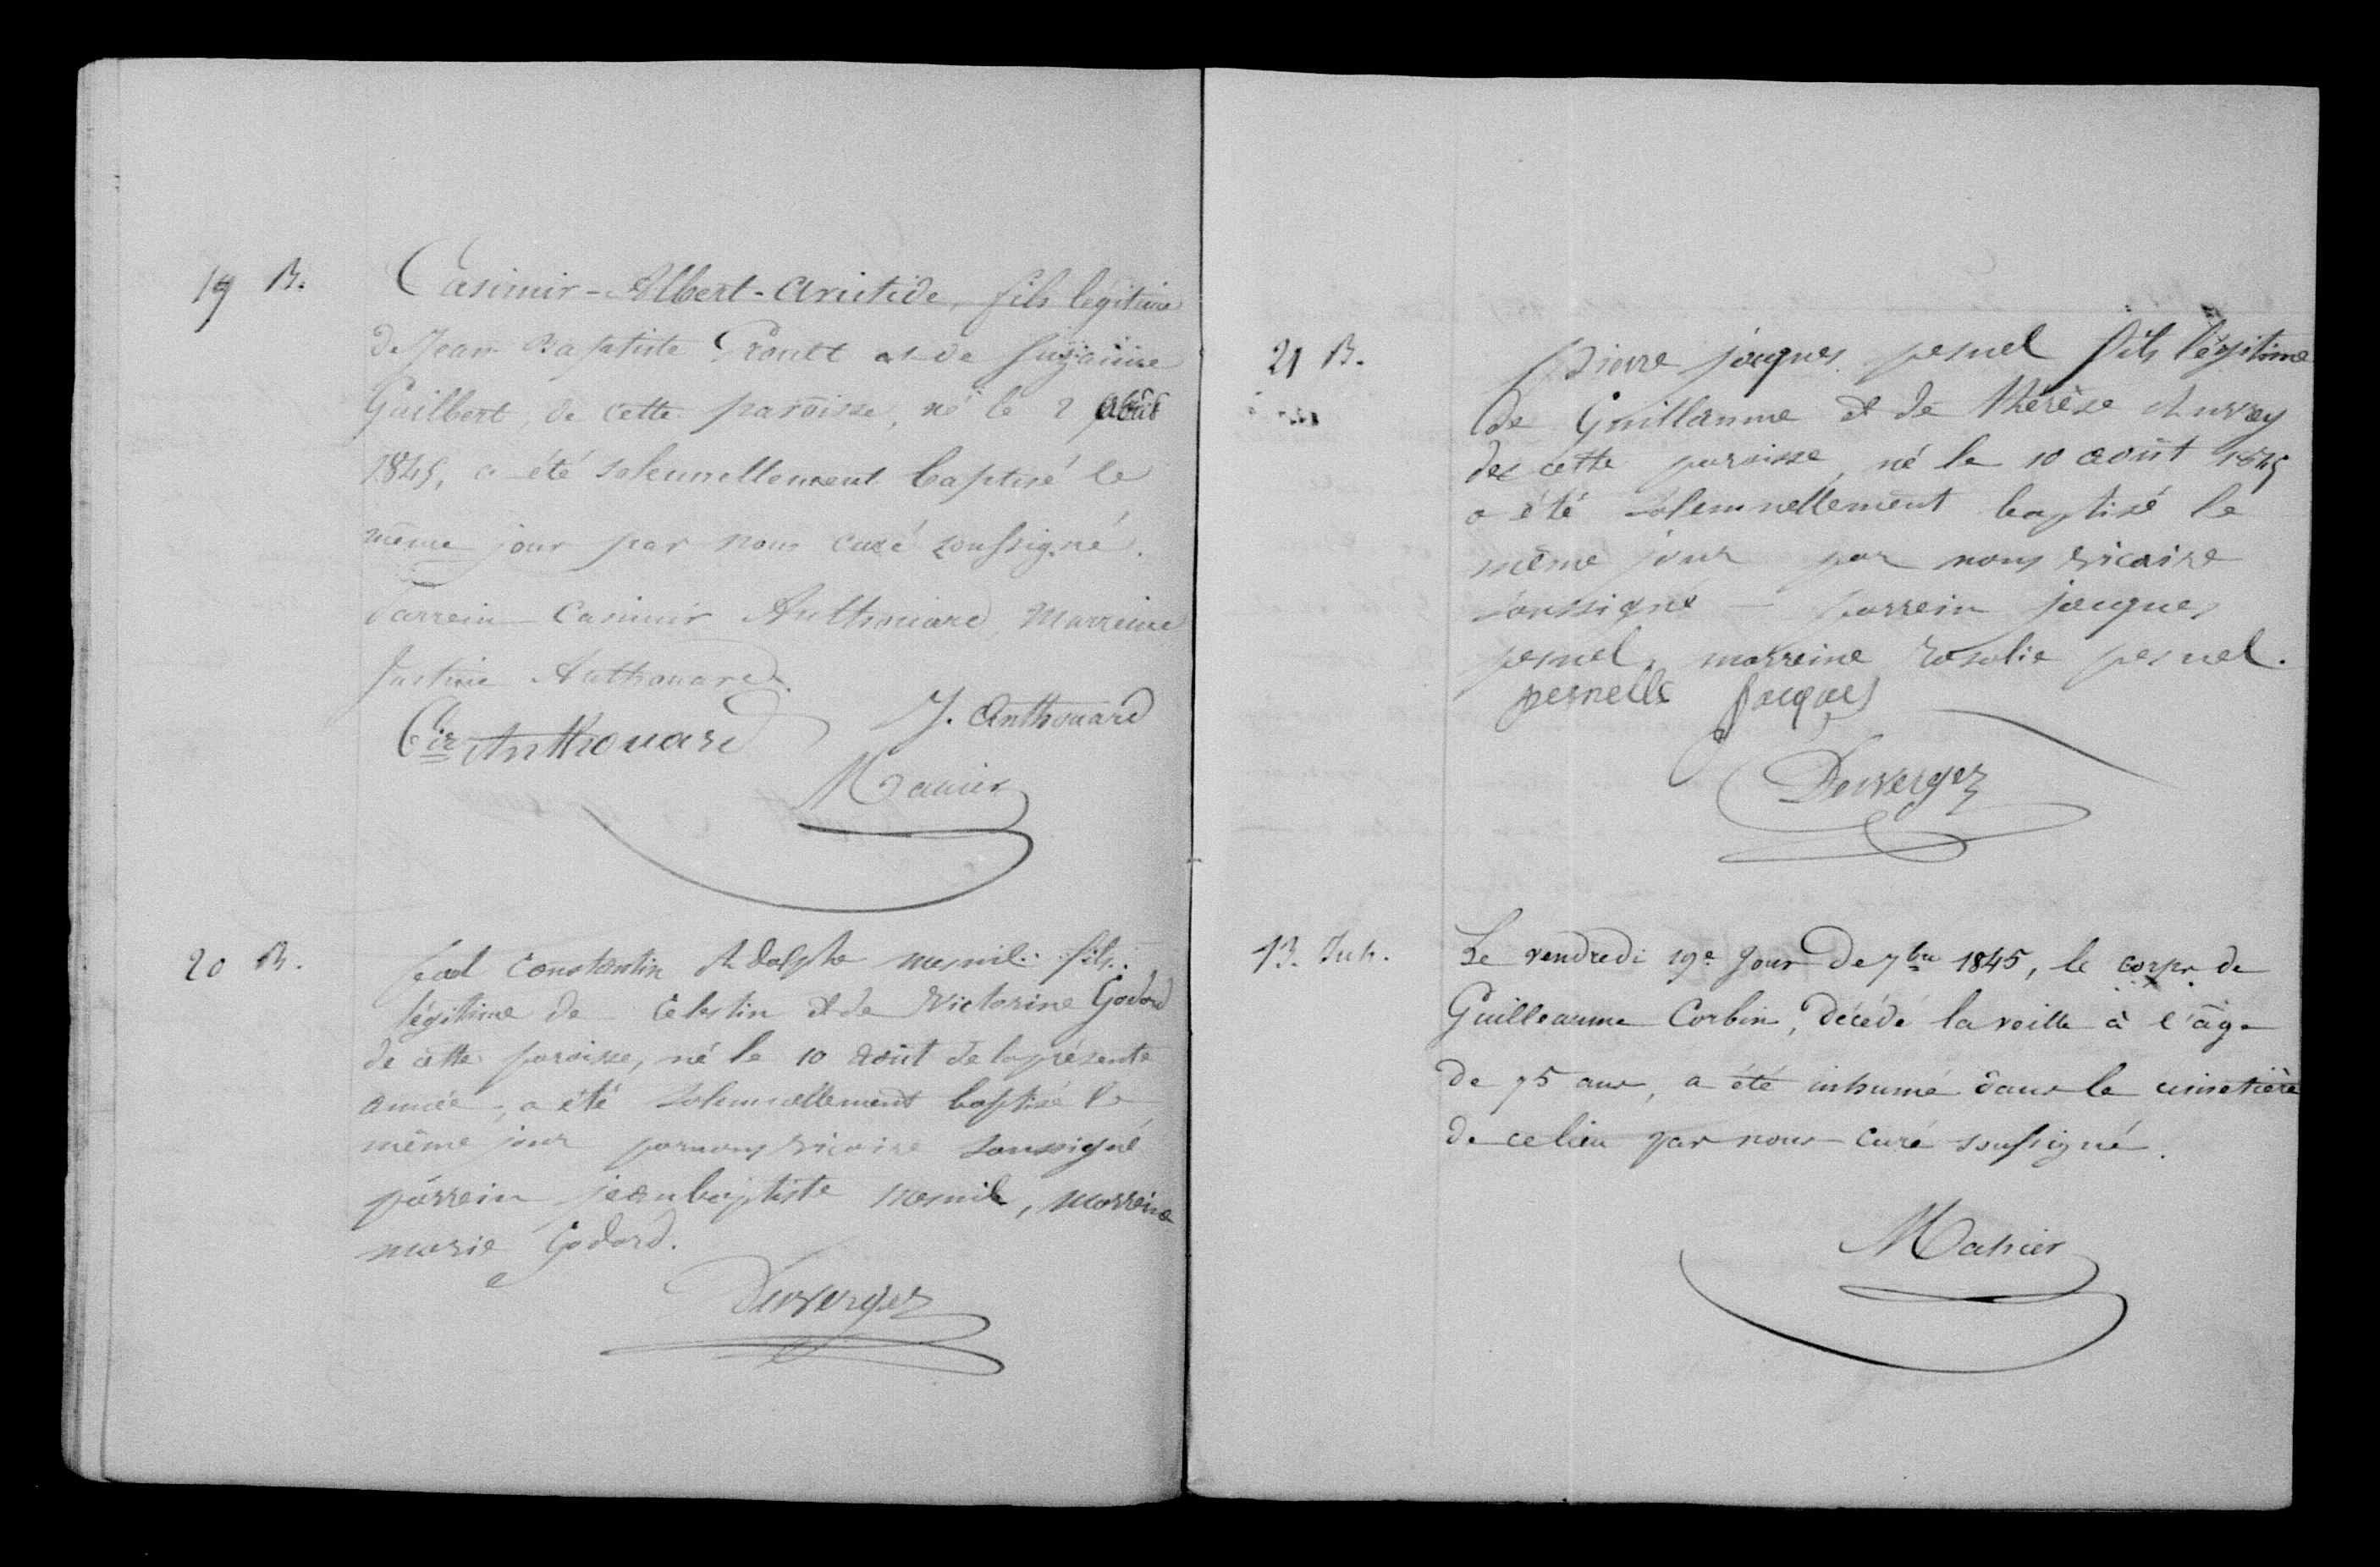 19 B.
Casimir-Albert-Aristide, fils légitime
de Jean Baptiste et de Suzanne
Guilbert, de cette paroisse, né le 2 août
1845, a été solennellement baptisé le
même jour par nous curé soussigné.
Parrein Casimir Anthouard, Marreine
Justine Anthouard.
Cir Anthouard J. Anthouard
Mahier
20 B.
Constantin Adolphe mesnil fils
légitime de Celestin et de Victorine Godard
de cette paroisse, né le 10 août de la présente
année, a été solemnellement baptisé le
même jour par nous vicaire soussigné
parrein jean baptiste mesnil, marreine
marie Godard.
Duvergez
21 B.
Pierre jacques pesnel fils légitime
de Guillaume et de Thérèse Auvray
de cette paroisse, né le 10 août 1845
a été solemnellement baptisé le
même jour par nous vicaire
soussigné - parrein jacques
pesnel, marreine rosalie pesnel.
pesnelle jacques
Duvergez
13. Inh.
Le vendredi 19e jour de 7bre 1845, le corps de
Guilleaume Corbin, décédé la veille à l'âge
de 75 ans, a été inhumé dans le cimetière
de ce lieu par nous curé soussigné.
Mahier